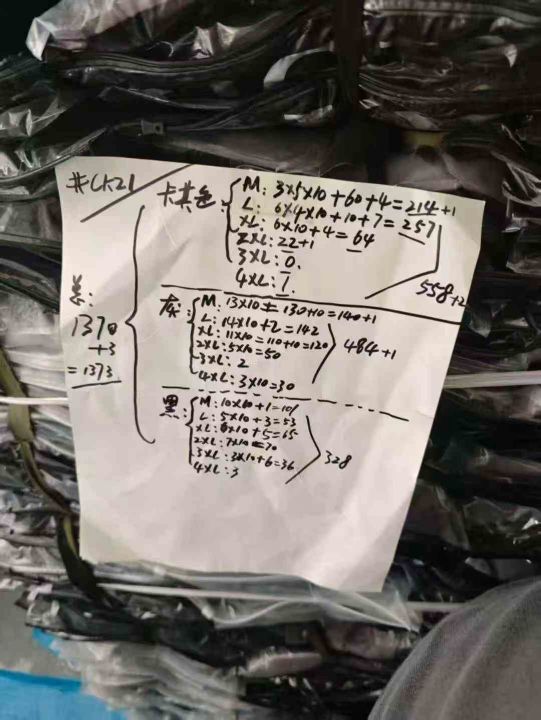 #CK21
卡其色:
M: 3×5×10+60+4=214+1
L: 6×4×10+10+7=257
XL: 6×10+4=64
2XL: 22+1
3XL: 0.
4XL: 1.
558+2
灰:
M: 13×10=130+10=140+1
L: 14×10+2=142
XL: 11×10=110+10=120
2XL: 5×10=50
3XL: 2
4XL: 3×10=30
484+1
黑:
M: 10×10+1=101
L: 5×10+3=53
XL: 6×10+5=65
2XL: 7×10=70
3XL: 3×10+6=36
4XL: 3
328
1370
+3
=1373